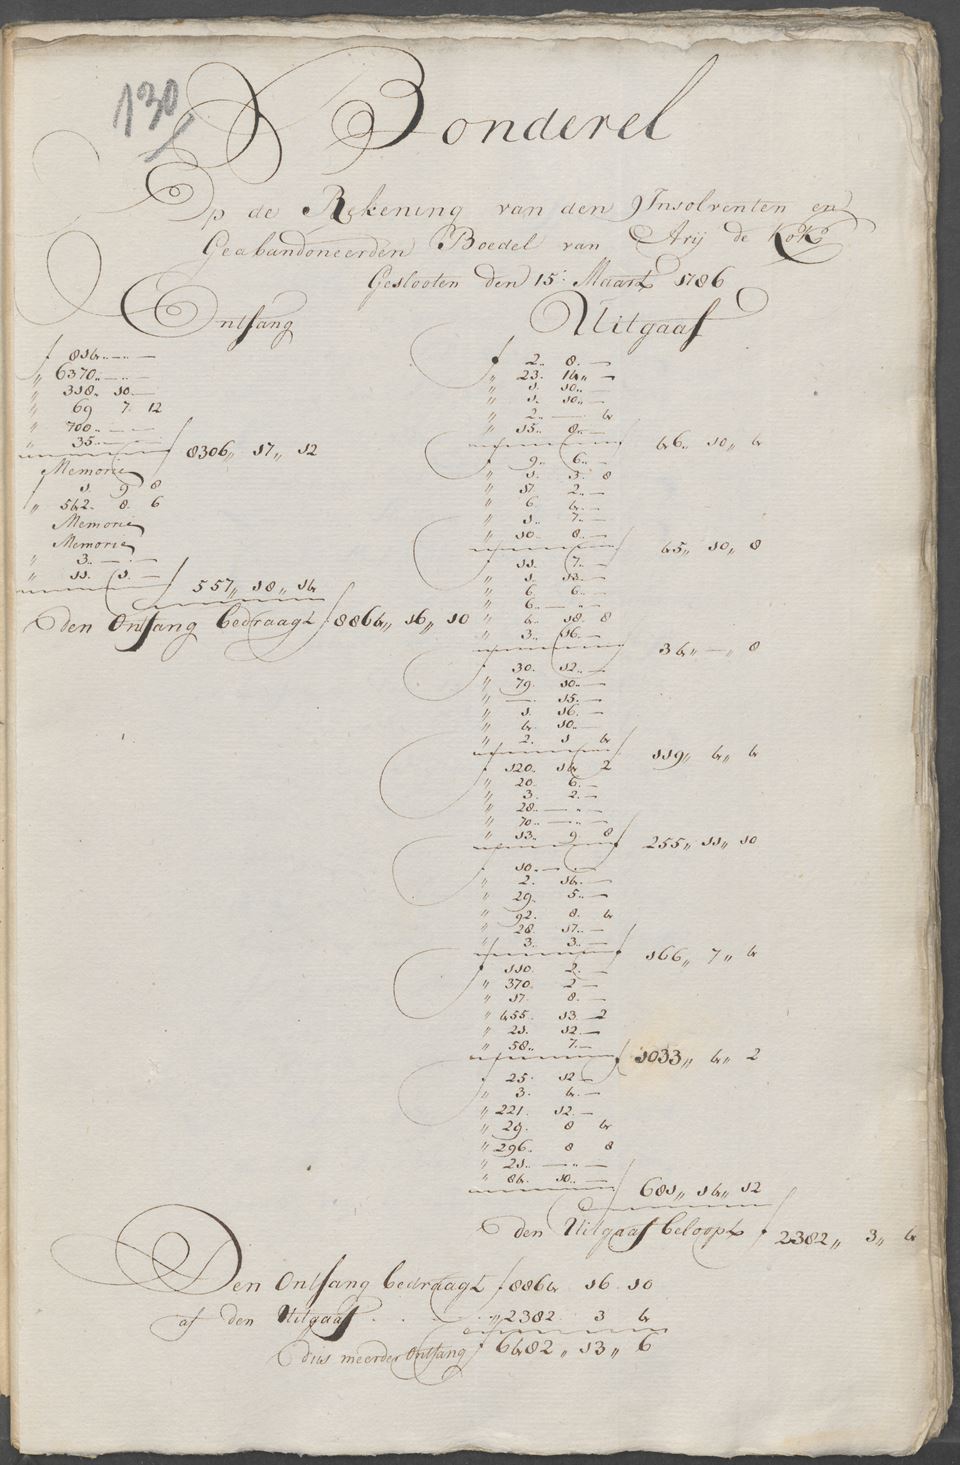 130
Bonderel
Op de Rekening van den Insolventen en
Geabandoneerden Boedel van Arij de Kok
Geslooten den 15: Maart 1786
Ontfang
ƒ 814..—..—
„ 6370..—..—
„ 318.. 10..—
„ 69 7. 12
„ 700..—..—
„ 35..—..—
ƒ 8306„ 17„ 12
Memorie
ƒ 1. 9. 8
„ 542. 8. 6
Memorie
Memorie
„ 3..—..—
„ 11. 1. —
ƒ 557„ 18„ 14
den Ontfang bedraagt ƒ 8864„ 16„ 10
Uitgaaf
ƒ 2.. 8. —
„ 23. 14„ —
„ 1. 10..—
„ 1. 10..—
„ 2..— 4
„ 15.. 8..—
ƒ 46„ 10„ 4
ƒ 9.. 6..—
„ 1. 3. 8
„ 17. 2..—
„ 6 4..—
„ 1.. 7..—
„ 10.. 8..—
ƒ 45„ 10„ 8
ƒ 11. 7..—
„ 1. 13..—
„ 6 6..—
„ 6..—„—
„ 4.. 18. 8
„ 3.. 16.—
ƒ 34„ —„ 8
ƒ 30. 12..—
„ 79. 10..—
„ —. 15.—
„ 1. 16.—
„ 4. 10..—
„ 2. 1 4
ƒ 119„ 4„ 4
ƒ 120. 14 2
„ 20. 6.—
„ 3. 2.—
„ 28..—„—
„ 70..—„—
„ 13.. 9 8
ƒ 255„ 11„ 10
ƒ 10..—..—
„ 2. 14.—
„ 29. 5..—
„ 92. 8. 4
„ 28. 17..—
„ 3.. 3..—
ƒ 166„ 7„ 4
ƒ 110. 2.—
„ 370. 2 —
„ 17. 8.—
„ 455. 13. 2
„ 21. 12.—
„ 58.. 7.—
ƒ 1033„ 4„ 2
ƒ 25. 12 —
„ 3. 4.—
„ 221. 12.—
„ 29. 8 4
„ 296. 8 8
„ 21..—„—
„ 84. 10..—
ƒ 681„ 14„ 12
den Uitgaaf beloopt ƒ 2382„ 3„ 4
Den Ontfang bedraagt ƒ 8864 16. 10
af den Uitgaaf . . . „ 2382 3 4
dus meerder Ontfang ƒ 6482„ 13„ 6